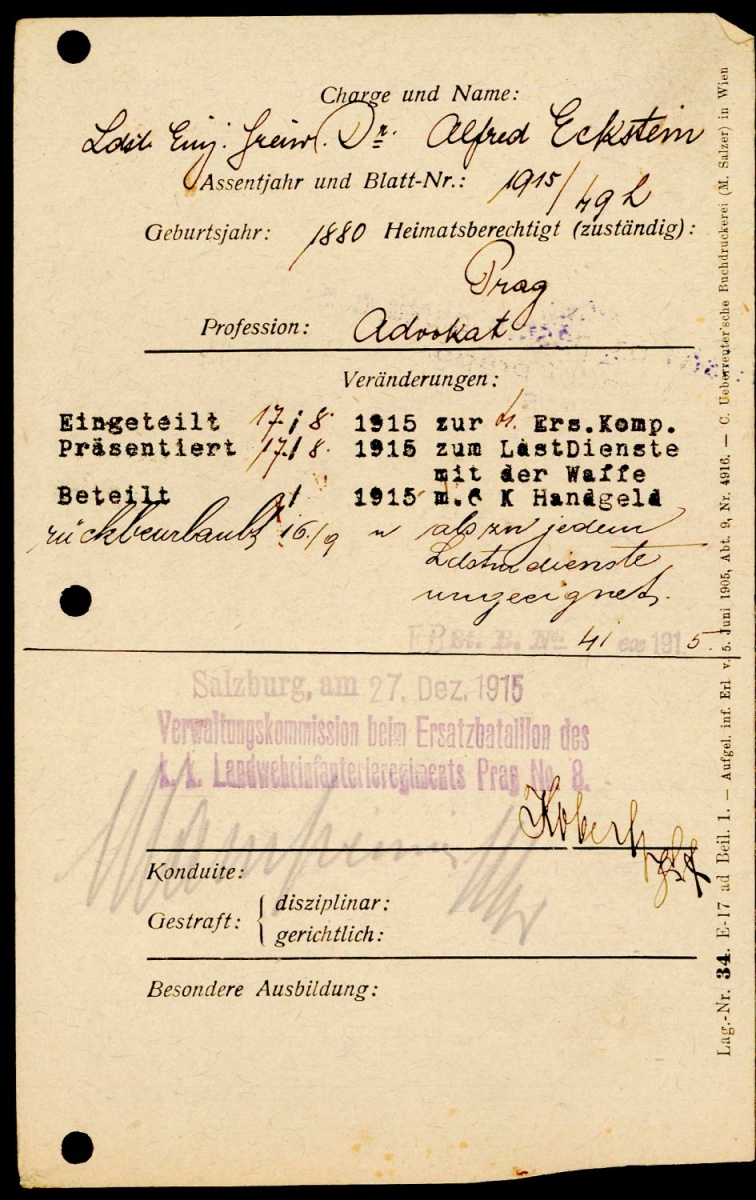 Charge und Name:
Ldst. Einj. Freiw. Dr. Alfred Eckstein
Assentjahr und Blatt-Nr.: 1915/
Geburtsjahr: 1880 Heimatsberechtigt (zuständig):
Prag
Profession: Advokat
Veränderungen:
Eingeteilt 17/8. 1915 zur Ers.Komp.
Präsentiert 17/8. 1915 zum LastDienste
mit der Waffe
Beteilt / 1915 m. K Handgeld
rückbeurlaubt 16/9 als zu jedem
Ldstm dienste
ungeeignet.
E. No. 41 ex 1915.
Salzburg, am 27. Dez. 1915
Verwaltungskommission beim Ersatzbataillon des
k. k. Landwehrinfanterieregiments Prag No. 8.
Konduite:
Gestraft: { disziplinar:
gerichtlich:
Besondere Ausbildung:
Lag.-Nr. 34. E-17 ad Beil. 1. — Aufgel. inf. Erl v. 5. Juni 1905, Abt. 9, Nr. 4916. — C. Ueberreuter'sche Buchdruckerei (M. Salzer) in Wien